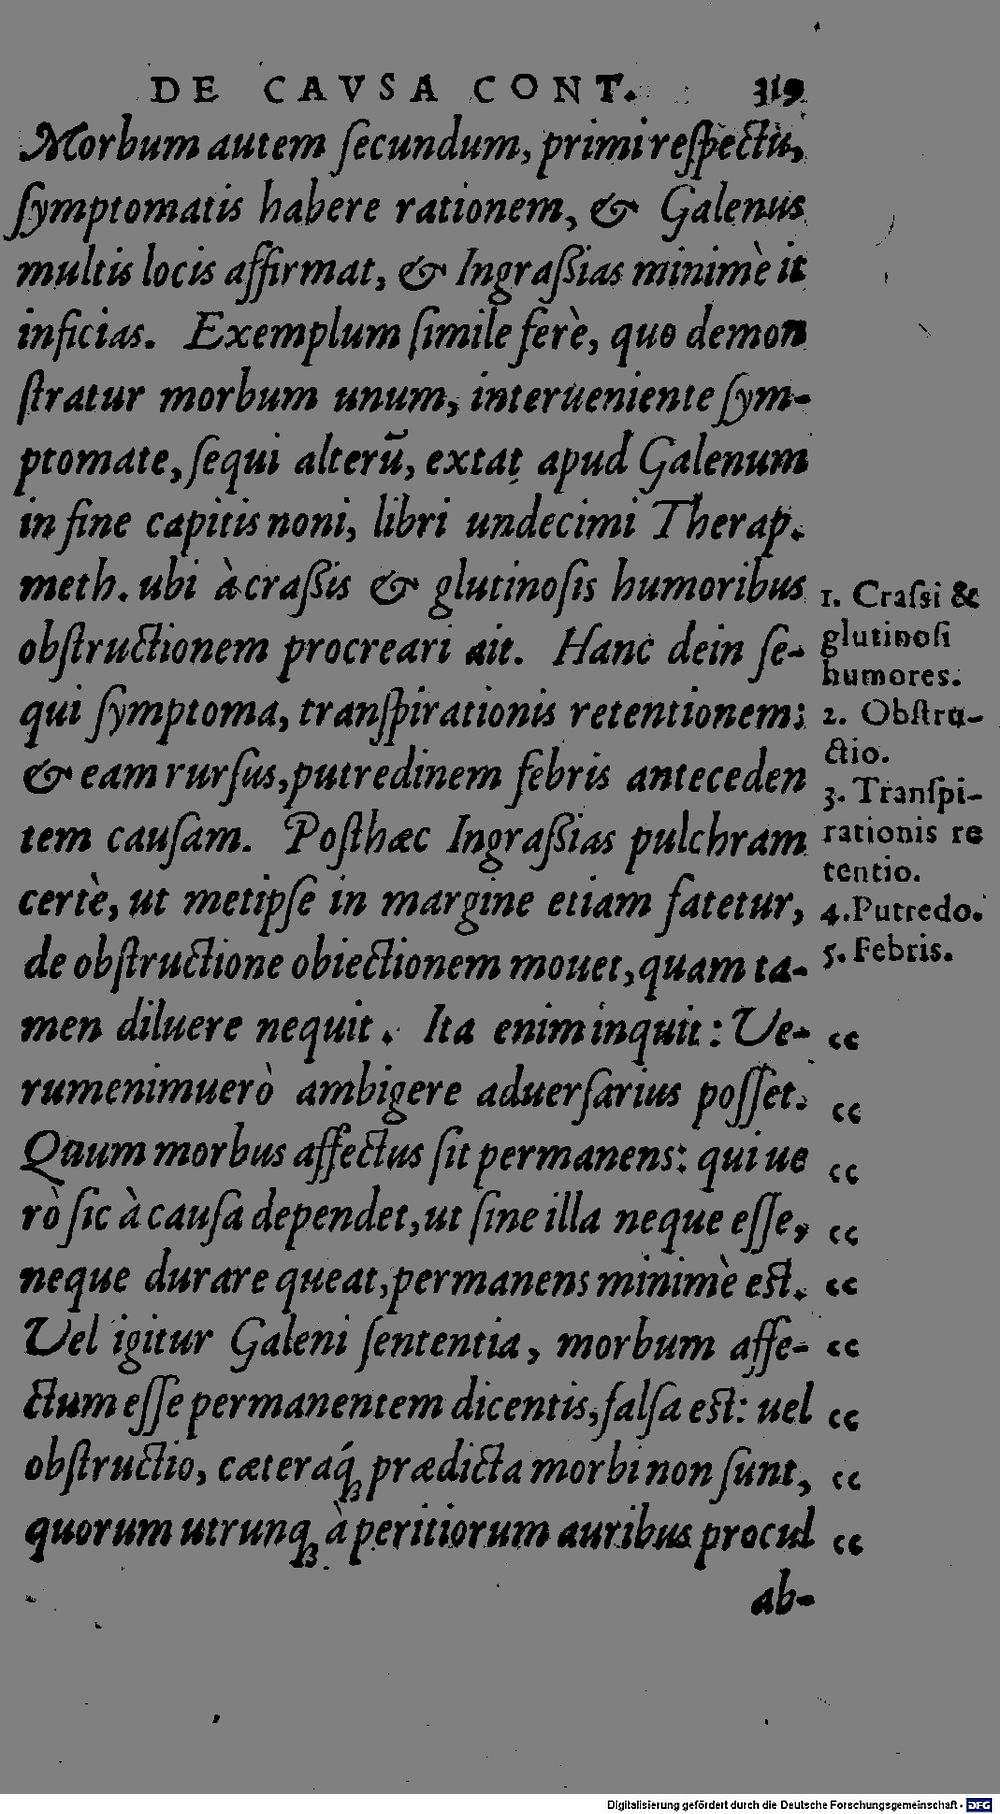 DE CAVSA CONT. 319
Morbum autem ſecundum, primi reſpectu,
ſymptomatis habere rationem, & Galenus
multis locis affirmat, & Ingraßias minimè it
inficias. Exemplum ſimile ferè, quo demon
ſtratur morbum unum, interueniente ſym-
ptomate, ſequi alterũ, extat apud Galenum
in fine capitis noni, libri undecimi Therap.
meth. ubi à craßis & glutinoſis humoribus
obſtructionem procreari ait. Hanc dein ſe-
qui ſymptoma, tranſpirationis retentionem:
& eam rurſus, putredinem febris anteceden
tem cauſam. Poſthæc Ingraßias pulchram
certè, ut metipſe in margine etiam fatetur,
de obſtructione obiectionem mouet, quam ta-
men diluere nequit. Ita enim inquit: Ve-
rumenimuerò ambigere aduerſarius poſſet.
Quum morbus affectus ſit permanens: qui ue
rò ſic à cauſa dependet, ut ſine illa neque eſſe,
neque durare queat, permanens minimè est.
Vel igitur Galeni ſententia, morbum affe-
ctum eſſe permanentem dicentis, falſa est: uel
obſtructio, cæteraq́ꝫ prædicta morbi non ſunt,
quorum utrunqꝫ à peritiorum auribus procul
ab-
1. Craſsi &
glutinoſi
humores.
2. Obſtru-
ctio.
3. Tranſpi-
rationis re
tentio.
4. Putredo.
5. Febris.
“
“
“
“
“
“
“
“
“
Digitalisierung gefördert durch die Deutsche Forschungsgemeinschaft - DFG